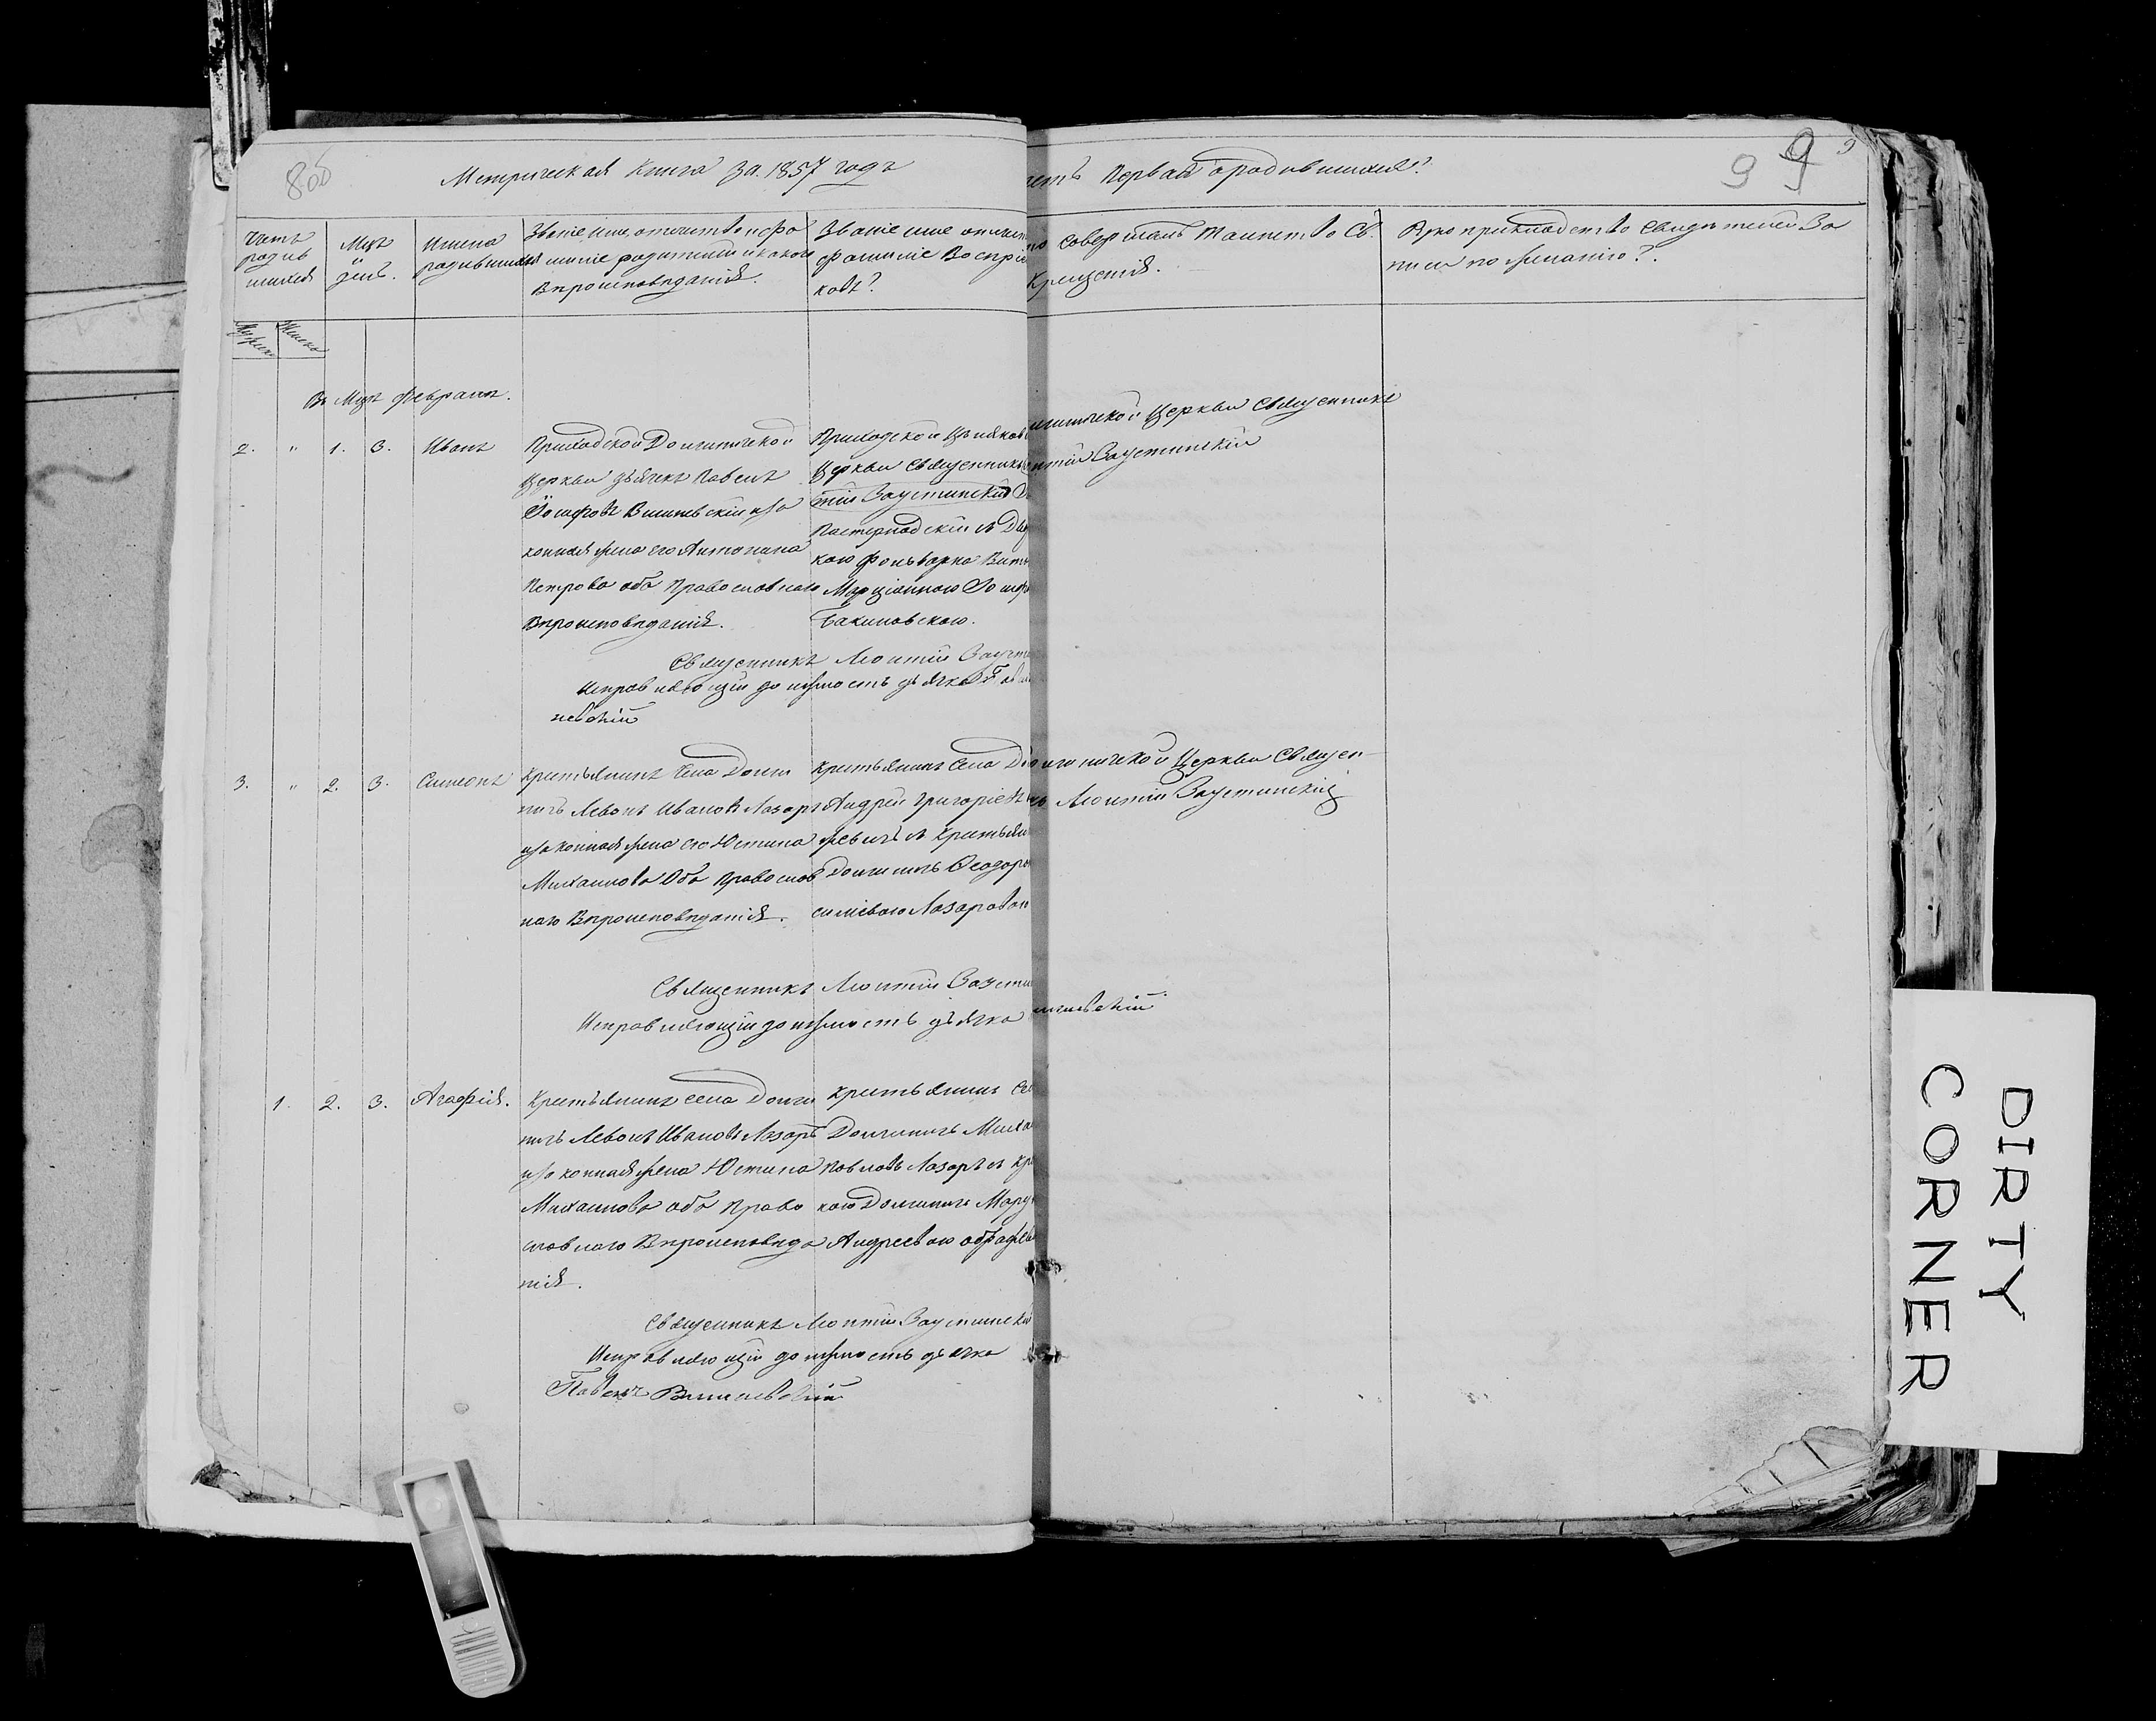 8об
Метрическая Книга за 1857 годъ
Первая о родившихся.
9 9
Счетъ родив шихся
Мцъ день.
Имена родившихся
Званіе имя отчество и фа миліе родителей и какого Вѣроисповѣданія.
Званіе имя отчест фамиліе Воспріе ковъ?
совершалъ таинство Св. Крещенія.
Рукоприкладство Свидѣтелей За писи по желанію?
Мужеска
Женска
Въ Мцѣ Февралѣ.
2. " 1. 3. Иванъ
Приходской Долгиничской
Церкви дьячекъ Павелъ
Іосифовъ Вишневскій иза
конная жена его Антонина
Петрова оба Православнаго
Вѣроисповѣданія.
Приходской
Церкви Священникъ
тій Заустинскій
кого фольварка
Маріанною Іосиф
Бакиновскою.
гиничской Церкви Священникъ
нтій Заустинскій
Священникъ Леонтій Заусти
Исправляющій должность дьячка Пав
невскій
3. " 2. 3. Симеонъ
Крестьянинъ Села Долги
ничь Левонъ Ивановъ Лазарь
иза конная жена его Юстина
Михаилова Оба Православ
наго Вѣроисповѣданія.
Крестьянинъ Села До
Андрей Григоріевъ
жевичъ и Крестьян
Долгиничь Ѳеодор
Лазаровою
лгиничской Церкви Священ
къ Леонтій Заустинскій
Священникъ Леонтій Заусти
Исправляющій должность дьячка
шневскій
1. 2. 3. Агафія.
Крестьянинъ села Долги
ничь Левонъ Ивановъ Лазарь
иза конная жена Юстина
Михаилова оба Право
славнаго Вѣроисповѣда
нія.
Крестьянинъ Се
Долгиничь Миха
Павловъ Лазарь и Кре
кою Долгиничь
Андреевою
Священникъ Леонтій Заустинскій
Исправляющій должность дьячка
Павелъ Вишневскій
DIRTY
CORNER